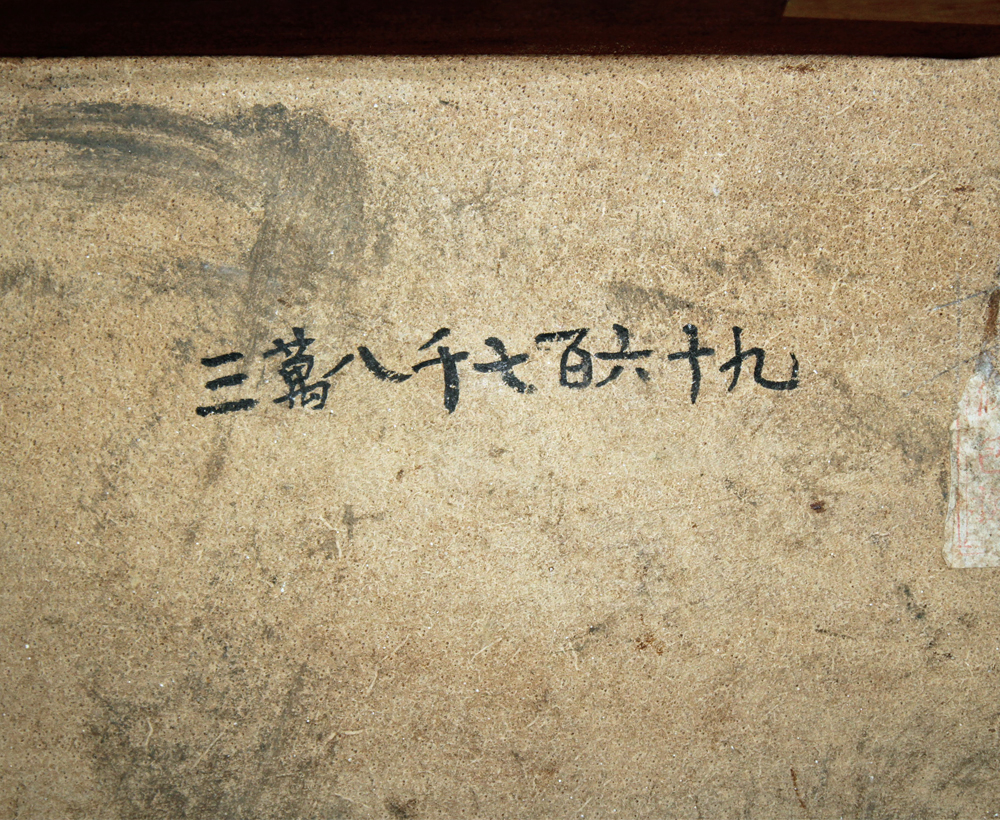 三萬八千七百六十九